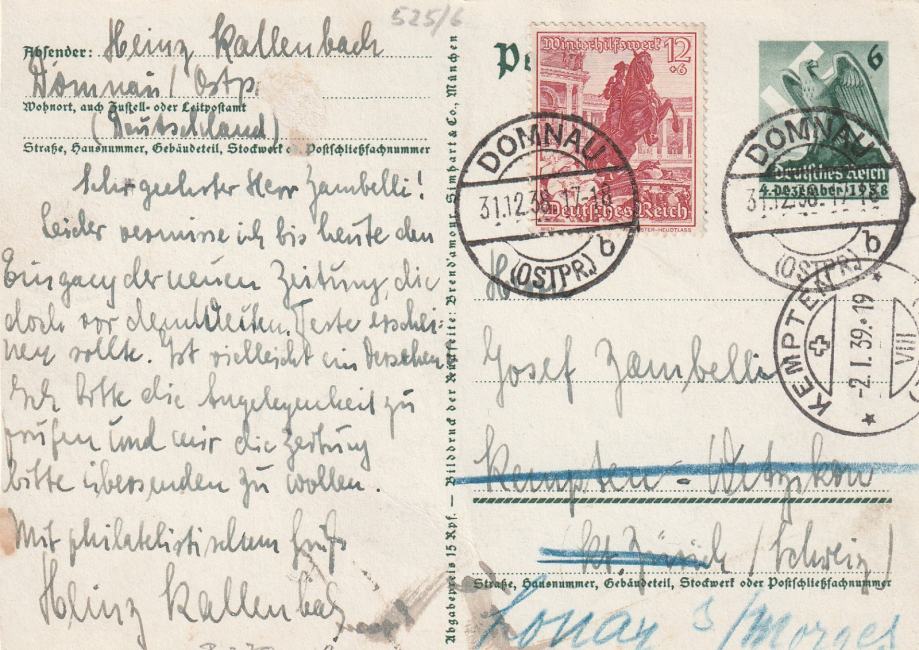 525/6
Absender: Heinz Kallenbach
Domnau / Ostp.
Wohnort, auch Zustell- oder Leitpostamt
(Deutschland)
Straße, Hausnummer, Gebäudeteil, Stockwert od. Postschließfachnummer
Sehr geehrter Herr Zambelli!
Leider vermisse ich bis heute den
Eingang der neuen Zeitung, die
doch vor dem Weihn. Feste erschei-
nen sollte. Ist vielleicht ein Versehen.
Ich bitte die Angelegenheit zu
prüfen und mir die Zeitung
bitte übersenden zu wollen.
Mit philatelistischem Gruß
Heinz Kallenbach
Abgabepreis 15 Rpf. — Bilddruck der Rückseite: Brend'amour, Simhart & Co., München
Winterhilfswerk 12
+6
Deutsches Reich
WIEN
6
Deutsches Reich
4. Dezember 1938
DOMNAU
31.12.38. 17-18
b
(OSTPR.)
DOMNAU
31.12.38. 17-18
b
(OSTPR.)
KEMPTEN
-2.I.39.-19
VIII
H
Josef Zambelli
Kempten - Wetzikon
Kt. Zürich (Schweiz)
Straße, Hausnummer, Gebäudeteil, Stockwerk oder Postschließfachnummer
Lonay s/Morges